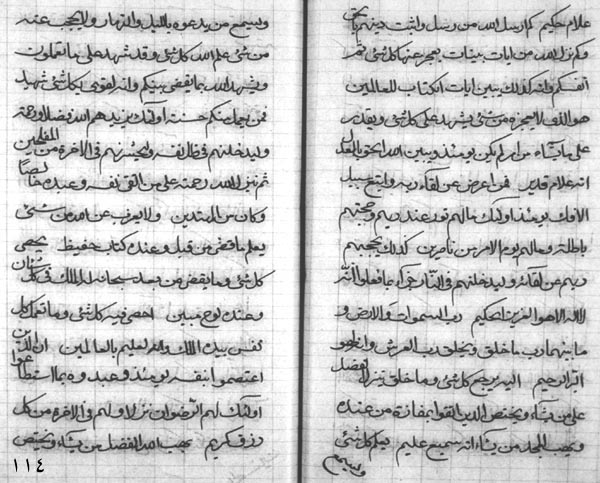 علام حكيم كم ارسل الله من رسل واثبت دينهم بالحق
وكم نزل الله من ايات بينات يعجز عنها كل شئ ثم
انفسكم وانه كذلك يبين ايات الكتاب للعالمين
هو الذى لا يعجزه من شئ يشهد على كل شئ ويقدر
على ما يشاء من امر لم يكن يومئذ ويبين الله الحق بالعدل
انه علام قدير فمن اعرض عن لقاء ربه واتبع سبيل
الافك يومئذ اولئك مالهم نور عند ربهم وحجتهم
باطلة ومالهم يوم الامر من ناصرين كذلك يحجبهم
ربهم عن لقائه وليدخلنهم فى النار جزاء ما فعلوا انه
لا اله الا هو العزيز الحكيم رب السموات والارض و
ما بينهما رب ما خلق ويخلق رب العرش وانه هو
البر الرحيم اليه يرجع كل شئ وما خلق ينزل الفضل
على من يشاء ويختص الذين اتقوا بمفازة من عنده
ويهب المجد من يشاء انه سميع عليم يعلم كل شئ
ويسمع
ويسمع من يدعوه بالليل والنهار ولا يحجب عنه
من شئ علم الله كل شئ وقد شهد على ما تعملون
ويشهد الله ما يقضى بينكم وانه لقوى بكل شئ شهيد
فمن يعمل منكم حسنة اولئك يزيدهم الله فضلا ورحمة
وليدخلنهم فى ظل نفسه فى الاخرة من المفلحين
ثم نزل الله رحمته على من اتقى نفسه وعبده خالصا
وكان من المهتدين ولا يعزب عن الله من شئ
يعلم ما قضى من قبل وعنده كتاب حفيظ يحصى
كل شئ وما يقضى من بعد سبحانه له الملك فى كل شان
وعنده لوح مبين احصى فيه كل شئ وما تعمل كل
نفس بيده الملك والله لعليم بالعالمين ان الذين
اعتصموا بنفسه يومئذ وعبدوه بما استطاعوا
اولئك لهم الرضوان نزلا ولهم فى الاخرة من كل
رزق كريم يهب الله الفضل من يشاء ويختص
١١٤